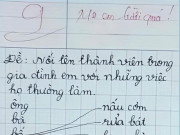 9
em giỏi quá!
Đề: Nối tên thành viên trong
gia đình em với những việc
họ thường làm.
ông nấu cơm
bà rửa bát
bố